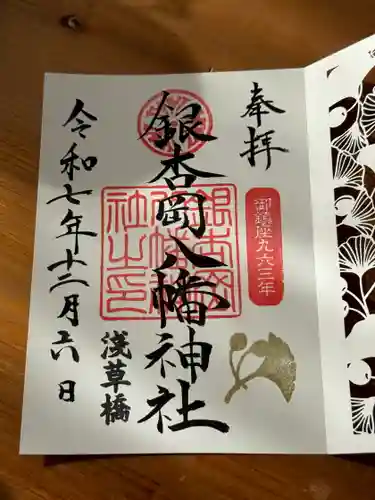 奉拝
御鎮座九六三年
銀杏岡八幡神社
浅草橋
令和七年十二月六日